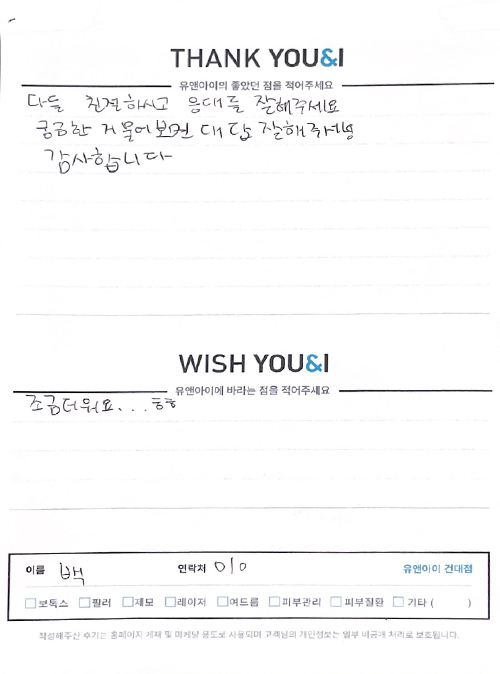 THANK YOU&I
유앤아이의 좋았던 점을 적어주세요
다들 친절하시고 응대를 잘해주세요
궁금한 거 물어보면 대답 잘해주셔성
감사합니다
WISH YOU&I
유앤아이에 바라는 점을 적어주세요
조금더워요... ㅎㅎ
이름 백 연락처 010 유앤아이 건대점
보톡스 필러 제모 레이저 여드름 피부관리 피부질환 기타 ( )
작성해주신 후기는 홈페이지 게재 및 마케팅 용도로 사용되며 고객님의 개인정보는 일부 비공개 처리로 보호됩니다.